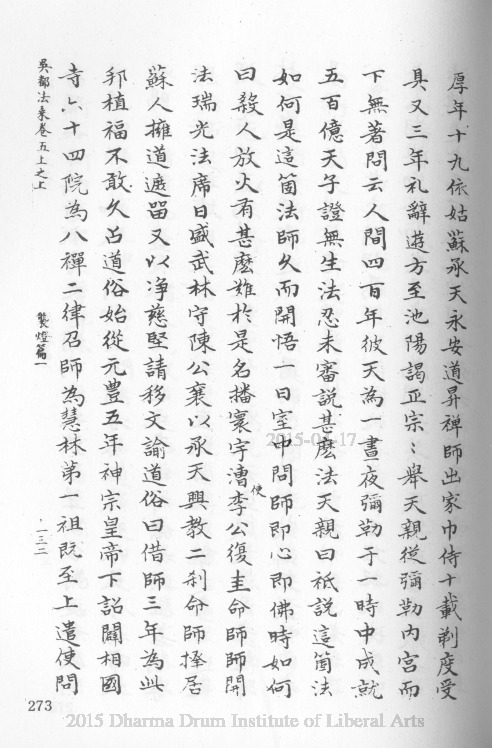 厚年十九依姑蘇承天永安道昇禪師出家巾侍十載剃度受
具又三年礼辭遊方至池陽謁正宗：舉天親從彌勒內宮而
下無著問云人間四百年彼天為一晝夜彌勒于一時中成就
五百億天子證無生法忍未審說甚麼法天親曰祇說這箇法
如何是這箇法師久而開悟一日室中問師即心即佛時如何
曰殺人放火有甚麼難於是名播寰宇漕使李公復圭命師師開
法瑞光法席日盛武林守陳公襄以承天興教二剎命師擇居
蘇人擁道遮留又以净慈堅請移文諭道俗曰借師三年為此
邦植福不敢久占道俗始從元豊五年神宗皇帝下詔闢相國
寺六十四院為八禪二律召師為慧林第一祖既至上遣使問
吳都法乗卷五上之上
籑燈篇一
一三二
273
2015-01-17
2015 Dharma Drum Institute of Liberal Arts